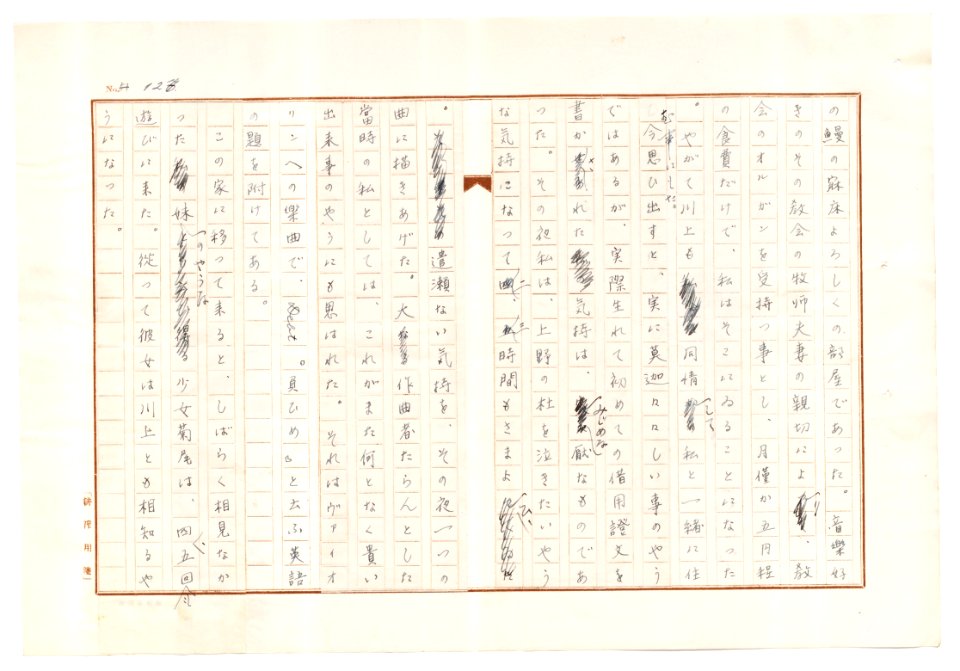 No. 12
の鰻の寐床よろしくの部屋であった。音樂好
きのその教会の牧師夫妻の親切により、教
会のオルガンを受持つ事とし、月僅か五円程
の食費だけで、私はそこにゐることになった
。やがて川上も同情して私と一緒に住
む事にした。
今思ひ出すと、実に莫迦々々しい事のやう
ではあるが、実際生れて初めての借用證文を
書かされた気持は、みじめな厭なものであ
った。その夜私は、上野の杜を泣きたいやう
な気持になって二、三時間もさまよひ
。遣瀬ない気持を、その夜一つの
曲に描きあげた。大作曲者たらんとした
當時の私としては、これがまた何となく貴い
出来事のやうにも思はれた。それはヴァイオ
リンへの楽曲で、。貝ひめ。と云ふ英語
の題を附けてある。
この家に移って来ると、しばらく相見なか
った妹のやうな少女菊尾は、四五回
遊びに来た。従って彼女は川上とも相知るや
うになった。